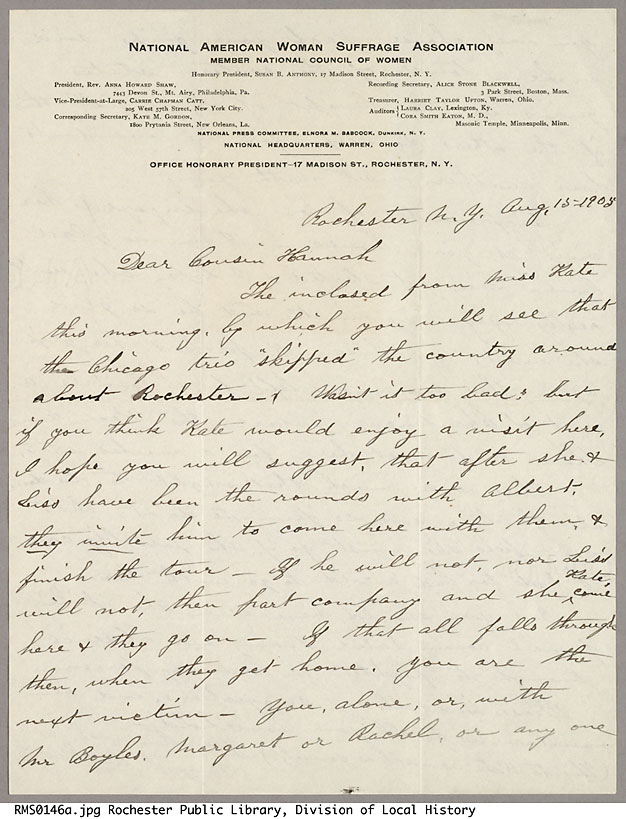 NATIONAL AMERICAN WOMAN SUFFRAGE ASSOCIATION
MEMBER NATIONAL COUNCIL OF WOMEN
Honorary President, SUSAN B. ANTHONY, 17 Madison Street, Rochester, N. Y.
President, Rev. ANNA HOWARD SHAW,
7443 Devon St., Mt. Airy, Philadelphia, Pa.
Vice-President-at-Large, CARRIE CHAPMAN CATT,
205 West 57th Street, New York City.
Corresponding Secretary, KATE M. GORDON,
1800 Prytania Street, New Orleans, La.
Recording Secretary, ALICE STONE BLACKWELL,
3 Park Street, Boston, Mass.
Treasurer, HARRIET TAYLOR UPTON, Warren, Ohio.
Auditors { LAURA CLAY, Lexington, Ky.
CORA SMITH EATON, M. D.,
Masonic Temple, Minneapolis, Minn.
NATIONAL PRESS COMMITTEE, ELNORA M. BABCOCK, DUNKIRK, N. Y.
NATIONAL HEADQUARTERS, WARREN, OHIO
OFFICE HONORARY PRESIDENT—17 MADISON ST., ROCHESTER, N. Y.
Rochester N.Y. Aug, 15-1905
Dear Cousin Hannah
The inclosed from Miss Kate
this morning. by which you will see that
the Chicago trio "skipped" the country around
about Rochester - & Wasn't it too bad; but
if you think Kate would enjoy a visit here,
I hope you will suggest, that after she &
have been the rounds with Albert,
they invite him to come here with them, &
finish the tour - If he will not, nor
will not, then part company and she, Kate, come
here & they go on - If that all falls through
then, when they get home, you are the
next victim - You, alone, or, with
Mr Boyles, Margaret or Rachel, or any one
RMS0146a.jpg Rochester Public Library, Division of Local History